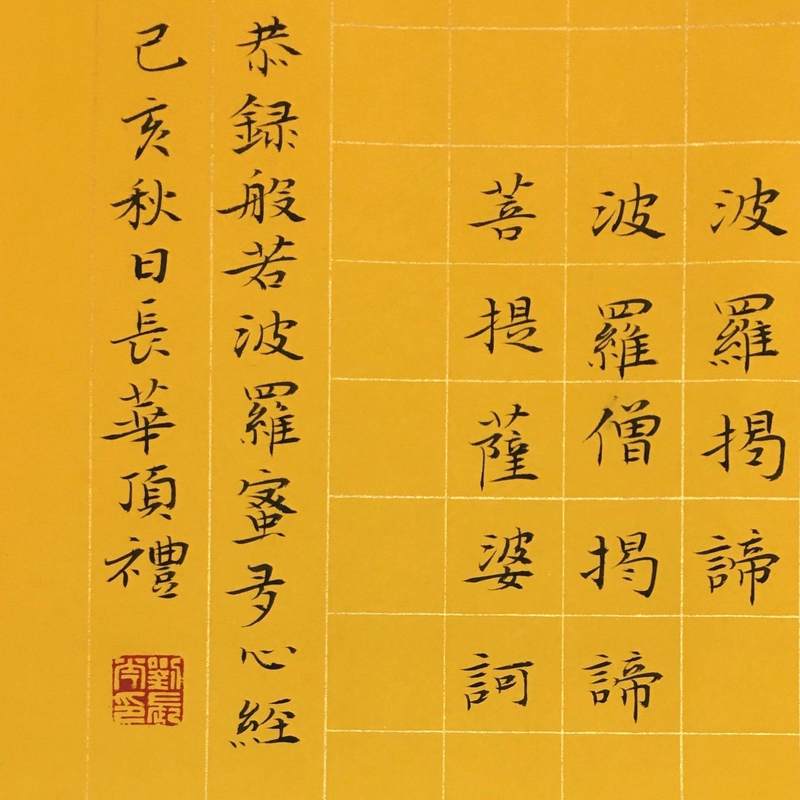 波羅揭諦
波羅僧揭諦
菩提薩婆訶
恭録般若波羅蜜多心經
己亥秋日長華頂禮